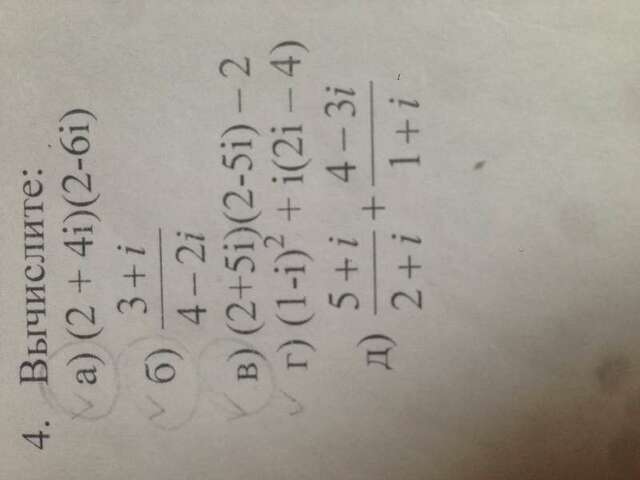 4. Вычислите:
а) (2 + 4i)(2-6i)
б) \frac{3 + i}{4 − 2i}
в) (2+5i)(2-5i) − 2
г) (1-i)² + i(2i − 4)
д) \frac{5 + i}{2 + i} + \frac{4 − 3i}{1 + i}